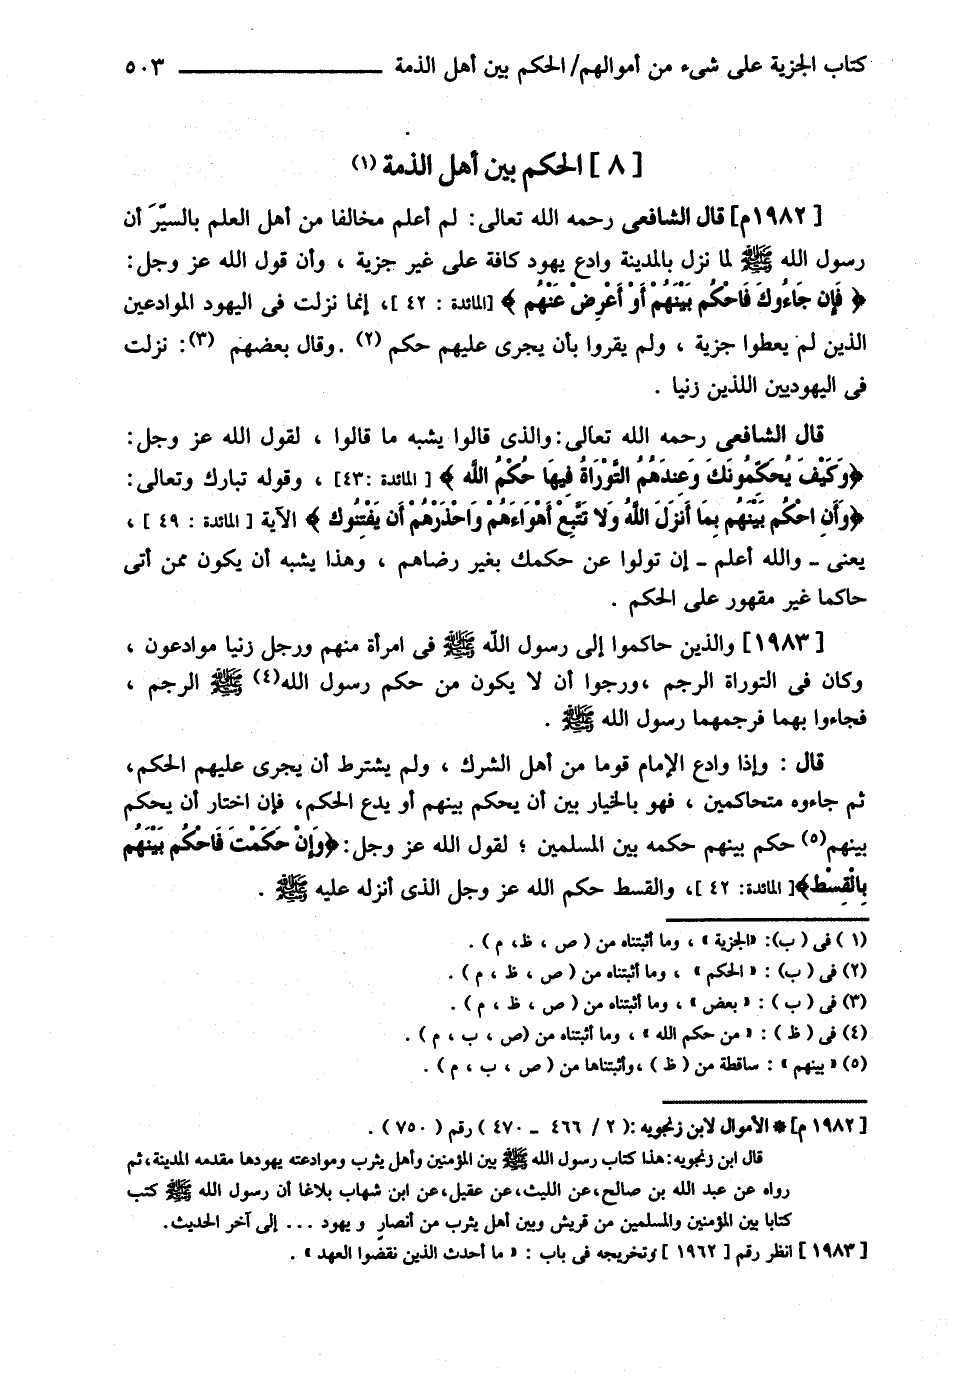 كتاب الجزية على شىء من أموالهم/ الحكم بين أهل الذمة ــــــــــــــــــــ ٥٠٣
[ ٨ ] الحكم بين أهل الذمة (١)
[ ١٩٨٢م] قال الشافعى رحمه الله تعالى: لم أعلم مخالفا من أهل العلم بالسيّرَ أن
رسول الله ﷺ لما نزل بالمدينة وادع يهود كافة على غير جزية ، وأن قول الله عز وجل:
﴿ فَإِن جَاءُوكَ فَاحْكُم بَيْنَهُمْ أَوْ أَعْرِضْ عَنْهُم ﴾ [المائدة : ٤٢ ]، إنما نزلت فى اليهود الموادعين
الذين لم يعطوا جزية ، ولم يقروا بأن يجرى عليهم حكم (٢) .وقال بعضهم (٣): نزلت
فى اليهوديين اللذين زنيا .
قال الشافعى رحمه الله تعالى:والذى قالوا يشبه ما قالوا ، لقول الله عز وجل:
﴿وَكَيْفَ يُحَكِّمُونَكَ وَعِندَهُمُ التَّوْرَاةُ فِيهَا حُكْمُ اللَّه ﴾ [ المائدة :٤٣] ، وقوله تبارك وتعالى:
﴿وَأَنِ احْكُم بَيْنَهُم بِمَا أَنزَلَ اللَّهُ وَلا تَتَّبِعْ أَهْوَاءَهُمْ وَاحْذَرْهُمْ أَن يَفْتِنُوك ﴾ الآية [ المائدة : ٤٩ ] ،
يعنى ـ والله أعلم ـ إن تولوا عن حكمك بغير رضاهم ، وهذا يشبه أن يكون ممن أتى
حاكما غير مقهور على الحكم .
[ ١٩٨٣] والذين حاكموا إلى رسول اللّه ﷺ فى امرأة منهم ورجل زنيا موادعون ،
وكان فى التوراة الرجم ،ورجوا أن لا يكون من حكم رسول الله(٤) ﷺ الرجم ،
فجاءوا بهما فرجمهما رسول الله ﷺ .
قال : وإذا وادع الإمام قوما من أهل الشرك ، ولم يشترط أن يجرى عليهم الحكم،
ثم جاءوه متحاكمين ، فهو بالخيار بين أن يحكم بينهم أو يدع الحكم، فإن اختار أن يحكم
بينهم(٥) حكم بينهم حكمه بين المسلمين ؛ لقول الله عز وجل:﴿وَإِنْ حَكَمْتَ فَاحْكُم بَيْنَهُم
بِالْقِسْط﴾[ المائدة: ٤٢ ]، والقسط حكم الله عز وجل الذى أنزله عليه ﷺ .
(١ ) فى ( ب): «الجزية » ، وما أثبتناه من ( ص ، ظ، م ) .
(٢) فى ( ب) : « الحكم » ، وما أثبتناه من ( ص ، ظ ، م ) .
(٣) فى ( ب ) : « بعض » ، وما أثبتناه من ( ص ، ظ ، م ) .
(٤) فى ( ظ ) : « من حكم الله » ، وما أثبتناه من (ص ، ب ، م ) .
(٥) « بينهم » : ساقطة من ( ظ ) ،وأثبتناها من ( ص ، ب ، م ) .
[ ١٩٨٢ م] * الأموال لابن زنجويه :( ٢ / ٤٦٦ ـ ٤٧٠ ) رقم ( ٧٥٠ ) .
قال ابن زنجويه:هذا كتاب رسول الله ﷺ بين المؤمنين وأهل يثرب وموادعته يهودها مقدمه المدينة،ثم
رواه عن عبد الله بن صالح،عن الليث،عن عقيل،عن ابن شهاب بلاغا أن رسول الله ﷺ كتب
كتابا بين المؤمنين والمسلمين من قريش وبين أهل يثرب من أنصارٍ و يهود ... إلى آخر الحديث.
[ ١٩٨٣ ] انظر رقم [ ١٩٦٢ ] وتخريجه فى باب : « ما أحدث الذين نقضوا العهد » .